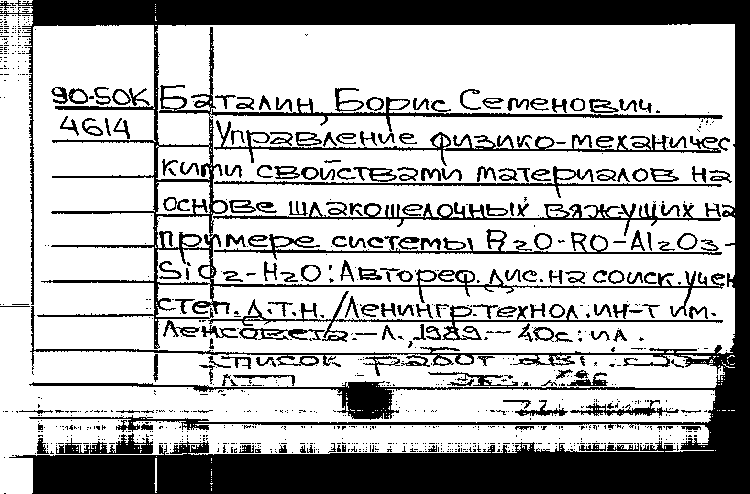 90-50К Баталин, Борис Семенович.
4614 Управление физико-механичес-
кими свойствами материалов на
основе шлакощелочных вяжущих на
примере системы R2O-RO-Al2O3-
SiO2-H2O: Автореф. дис. на соиск. учен.
степ. д.т.н. /Ленингр. технол. ин-т им.
Ленсовета. - Л., 1989. - 40с: ил.
Список работ авт.: с.